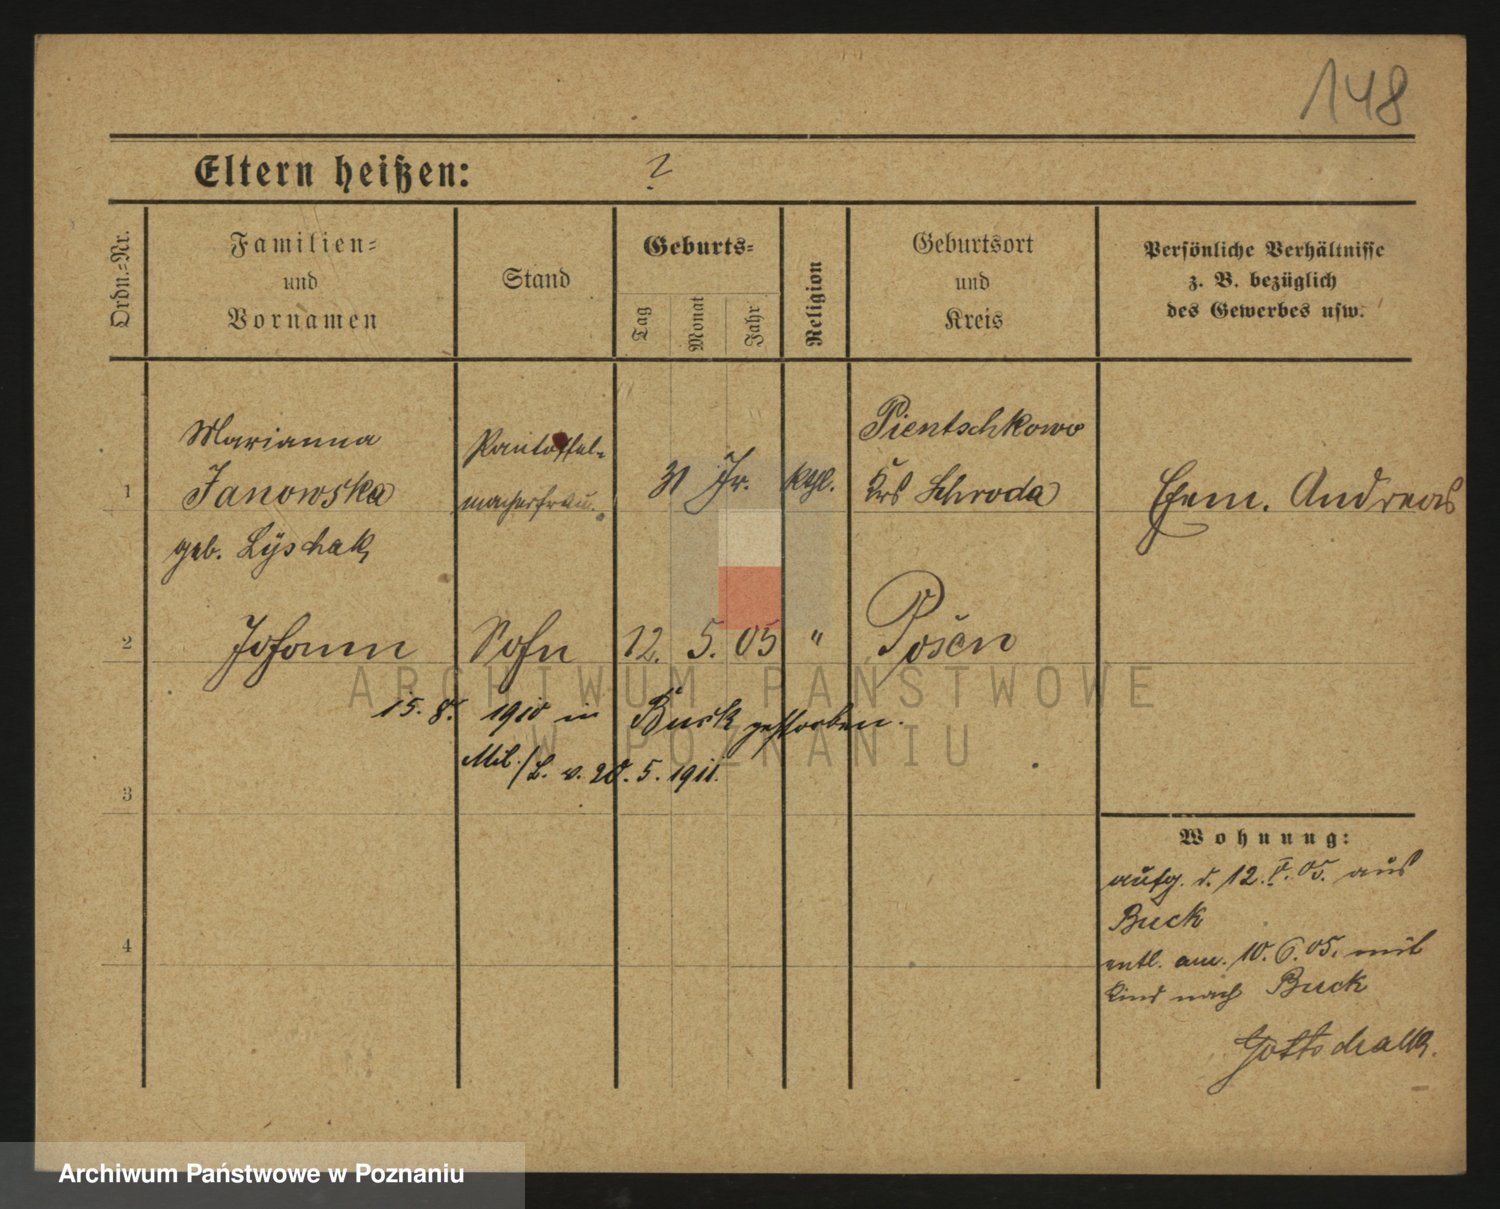 148
Eltern heißen: ?
Ordn.-Nr.
Familien-
und
Vornamen
Stand
Geburts-
Tag
Monat
Jahr
Religion
Geburtsort
und
Kreis
Persönliche Verhältnisse
z. B. bezüglich
des Gewerbes usw.
1
Marianna
Janowska
geb. Lyschak
Pantoffel-
macherfrau.
31 Jr.
kthl.
Pientschkowo
Krs Schroda
Ehem. Andreas
2
Johann
Sohn
12. 5. 05
"
Posen
15. 8. 1910 in Buck gestorben.
Mil./L. v. 20. 5. 1911.
3
4
Wohnung:
aufg. d. 12. V. 05. aus
Buck
entl. am. 10. 6. 05. mit
Kind nach Buck
Gottschalk.
ARCHIWUM PAŃSTWOWE
W POZNANIU
Archiwum Państwowe w Poznaniu